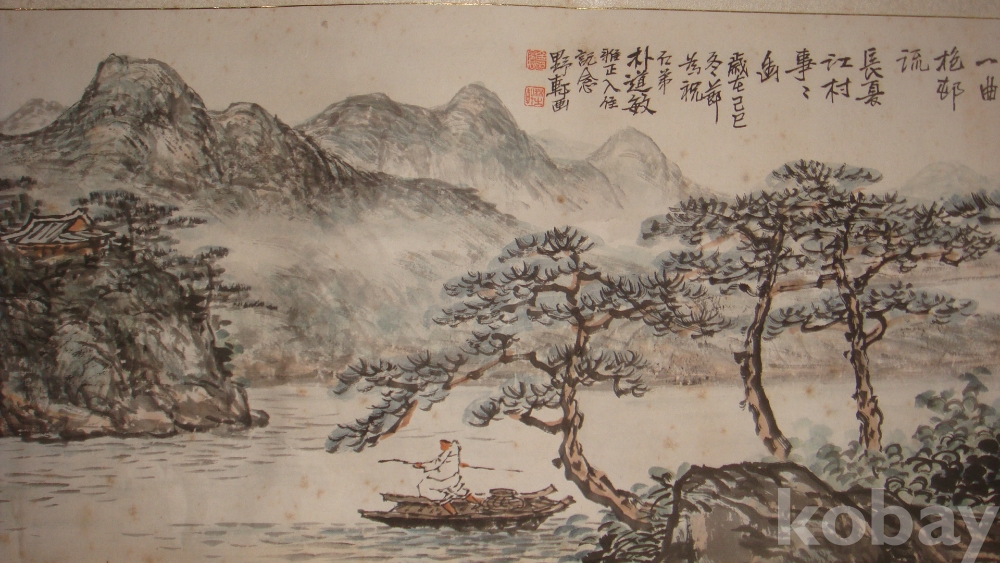 一曲
抱邨
流
長夏
江村
事々
幽
歲在己巳
冬節
為祝
石弟
朴道敏
雅正入住
記念
野軒画
kobay